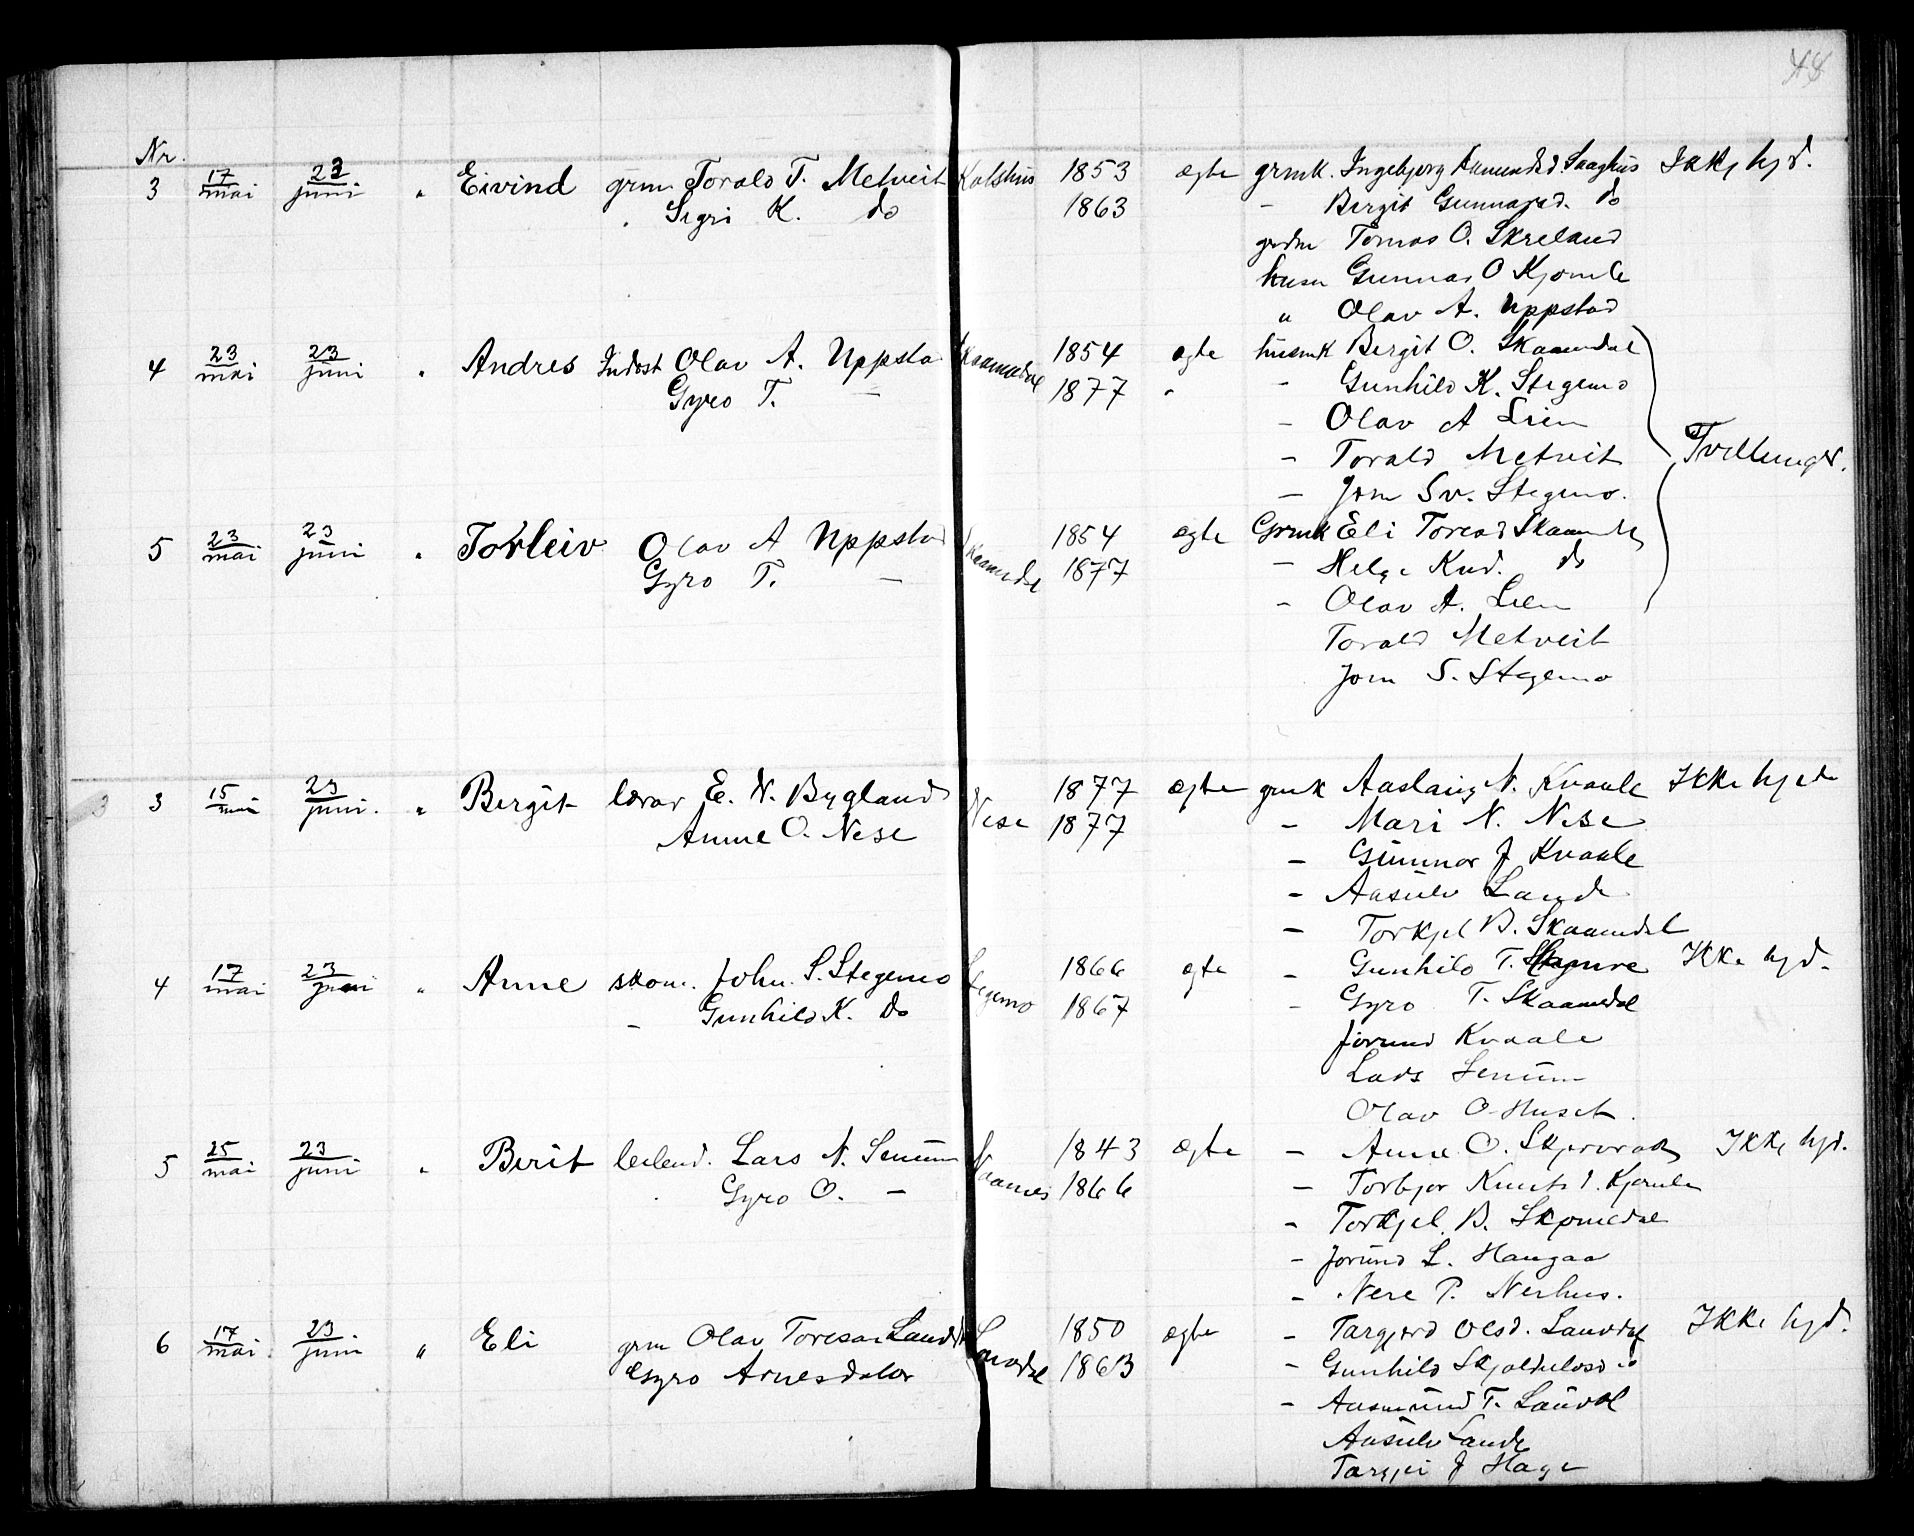 48
Nr.
3 17/mai 23/juni " Eivind grm. Torald T. Metveit Katshus 1853 ægte grmk. Ingebjorg Aamundsd. Saaghus Ikkj hjd.
" Sigri K. do 1863 - Bergit Gunnarsd. do
grdm Tomas O. Skreland
husm Gunnar O Kjomle
" Olav A. Uppstad
4 23/mai 23/juni " Andres Indest Olav A. Uppsta Skaamedal 1854 ægte husmk Bergit O. Skaamdal
Gyro T. - 1877 " - Gunhild K. Stegemo
- Olav A Lien
- Torald Metveit Tvillinger.
- Jom Sv. Stegemo.
5 23/mai 23/juni " Torleiv Olav A Uppstad Skaamedal 1854 ægte Grmk Eli Toresd Skaamdal
Gyro T. - 1877 - Helge Knd. do
- Olav A. Lien
Torald Metveit
Jom S. Stegemo
3 3 15/mai 23/juni. " Bergit lærar E. N. Bygland Nese 1877 ægte grmk Aaslaug N. Kvaale Ikke hjd
Anne O. Nese 1877 - Mari N. Nese
- Gunnar J Kvaale
- Aasulv Lande
- Torkjel B. Skaamdal
4 17/mai 23/juni " Anne skom. John. S. Stegemo Stegemo 1866 ægte - Gunhild T. Ikke hjd.
- Gunhild K. Do 1867 - Gyro T. Skaamedal
Jorund Kvaale
Lads Senum
Olav O Huset.
5 25/mai 23/juni " Berit leilend. Lars N. Senum Naannes 1843 ægte - Anne O. Skjervrak Ikkj hjd.
Gyro O. - 1866 - Torbjor Knutsd. Kjomle
- Torkjel B. Skomedal
- Jorund L. Haugaa
- Nere P. Nerhus.
6 17/mai 23/juni " Eli grm Olav Toresan Lauvdal Lauvdal 1850 ægte - Targjerd Olsd. Lauvdal Ikke hjd.
Gyro Arnesdoter 1863 - Gunhild Skjoldulvsd do
- Aasmund T. Lauvdl
Aasulv Lande
Targjei J Hage